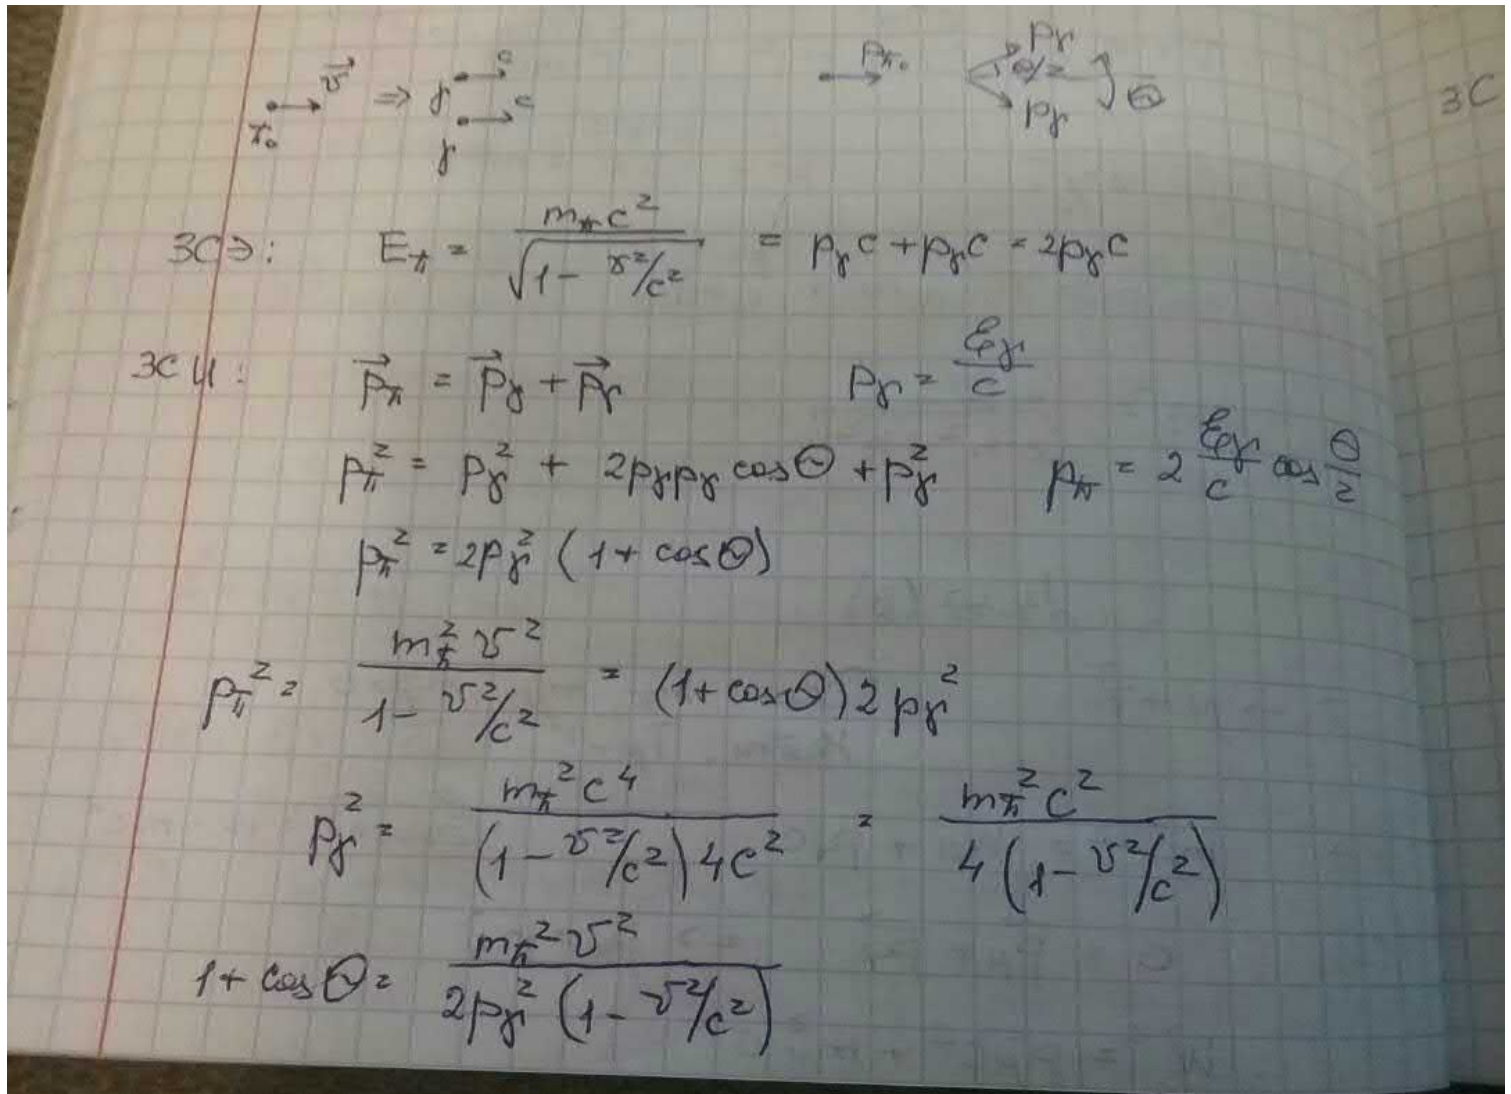 π₀ v⃗ ⇒ γ c γ c p_π₀ p_γ θ/2 p_γ Θ
ЗС
ЗСЭ: E_π = m_π c² / √(1 - γ²/c²) = p_γ c + p_γ c = 2p_γ c
ЗСИ: p⃗_π = p⃗_γ + p⃗_γ p_γ = E_γ / c
p_π² = p_γ² + 2p_γ p_γ cos Θ + p_γ² p_π = 2 E_γ/c cos Θ/2
p_π² = 2p_γ² (1 + cos Θ)
p_π² = m_π² v² / (1 - v²/c²) = (1 + cos Θ) 2 p_γ²
p_γ² = m_π² c⁴ / ((1 - v²/c²) 4c²) = m_π² c² / (4 (1 - v²/c²))
1 + cos Θ = m_π² v² / (2p_γ² (1 - v²/c²))